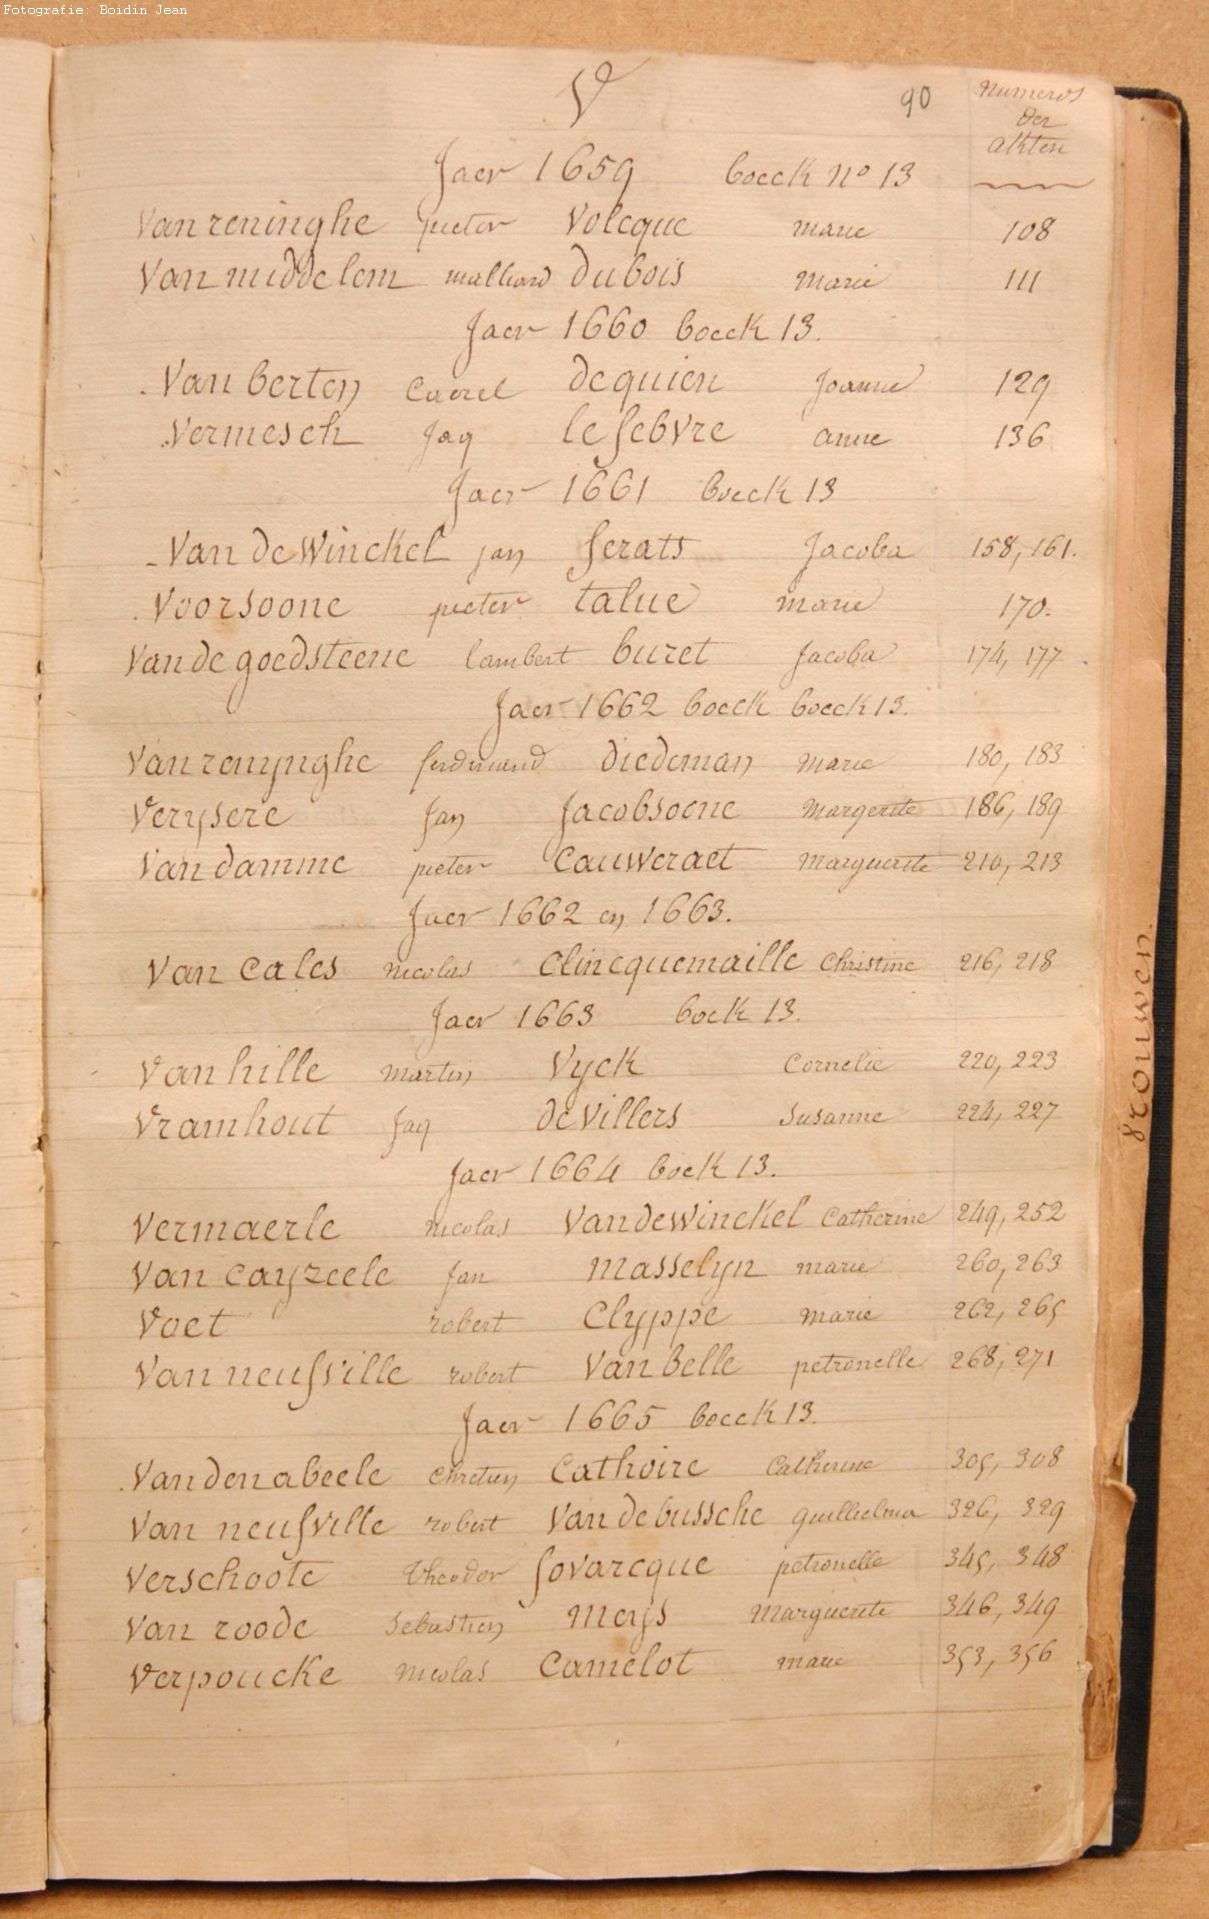 Fotografie: Boidin Jean
V 90 Numeros
der
akten
Jaer 1659 boeck No 13
Van reninghe pieter Volcque marie 108
Van middelem dubois Marie 111
Jaer 1660 boeck 13.
Van berten Caerel dequien Joanne 129
Vermesch Jaq lefebvre anne 136
Jaer 1661 boeck 13
Van de Winckel jan ferats Jacoba 158, 161.
Voorsoone pieter talue marie 170.
Van de goedsteene lambert buret Jacoba 174, 177
Jaer 1662 boeck boeck 13.
Van renynghe ferdinand diedeman marie 180, 183
Verysere Jan Jacobsoone Margerite 186, 189
Van damme pieter Cauweraet Marguerite 210, 213
Jaer 1662 en 1663.
Van Cales nicolas Clincquemaille Christine 216, 218
Jaer 1663 boek 13.
Van hille martin Vyck Cornelie 220, 223
Vramhout Jaq de Villers Susanne 224, 227
Jaer 1664 boek 13.
Vermaerle nicolas Van de Winckel Catherine 249, 252
Van Cayzeele Jan Masselyn marie 260, 263
Voet robert Clyppe marie 262, 265
Van neufville robert Van belle petronelle 268, 271
Jaer 1665 boeck 13.
Van den abeele Chretien Cathoire Catherine 305, 308
Van neufville robert Van de bussche guillielma 326, 329
Verschoote Theodor fovarcque petronelle 345, 348
Van roode Sebastien Meys Marguerite 346, 349
Verpoucke nicolas Camelot marie 353, 356
vrouwen